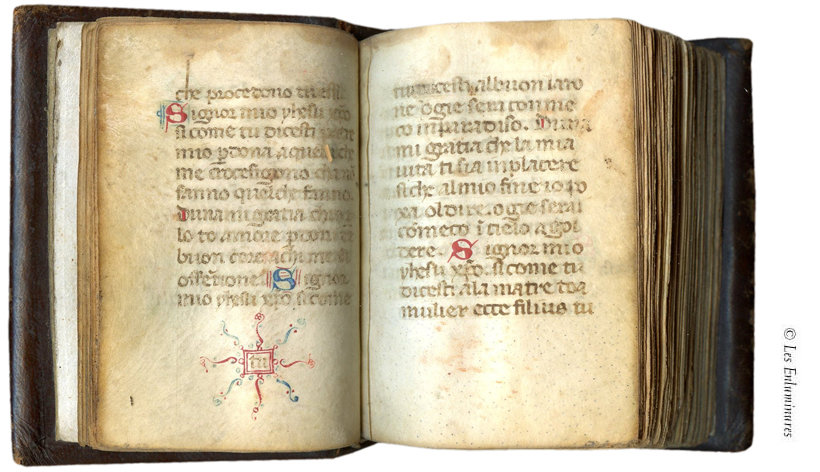 che procedono tu
Signor mio yhesu xpo
si come tu dicesti
mio pdona aquelli che
me crocefigono che no
sanno quel che fanno.
Duna mi gratia chio p
lo to amore pdoni di
buon core achi me
offetiones Signor
mio yhesu xpo si come
tu
tu dicesti al buon laro
ne ogie serai con me
co in paradiso. Duna
mi gratia che la mia
vita ti sia in placere
si che al mio fine io
oldire. ogie serai
comeco i cielo agol
dere. Signor mio
yhesu xpo. si come tu
dicesti ala matre toa
mulier ecce filius tu
© Les Enluminures